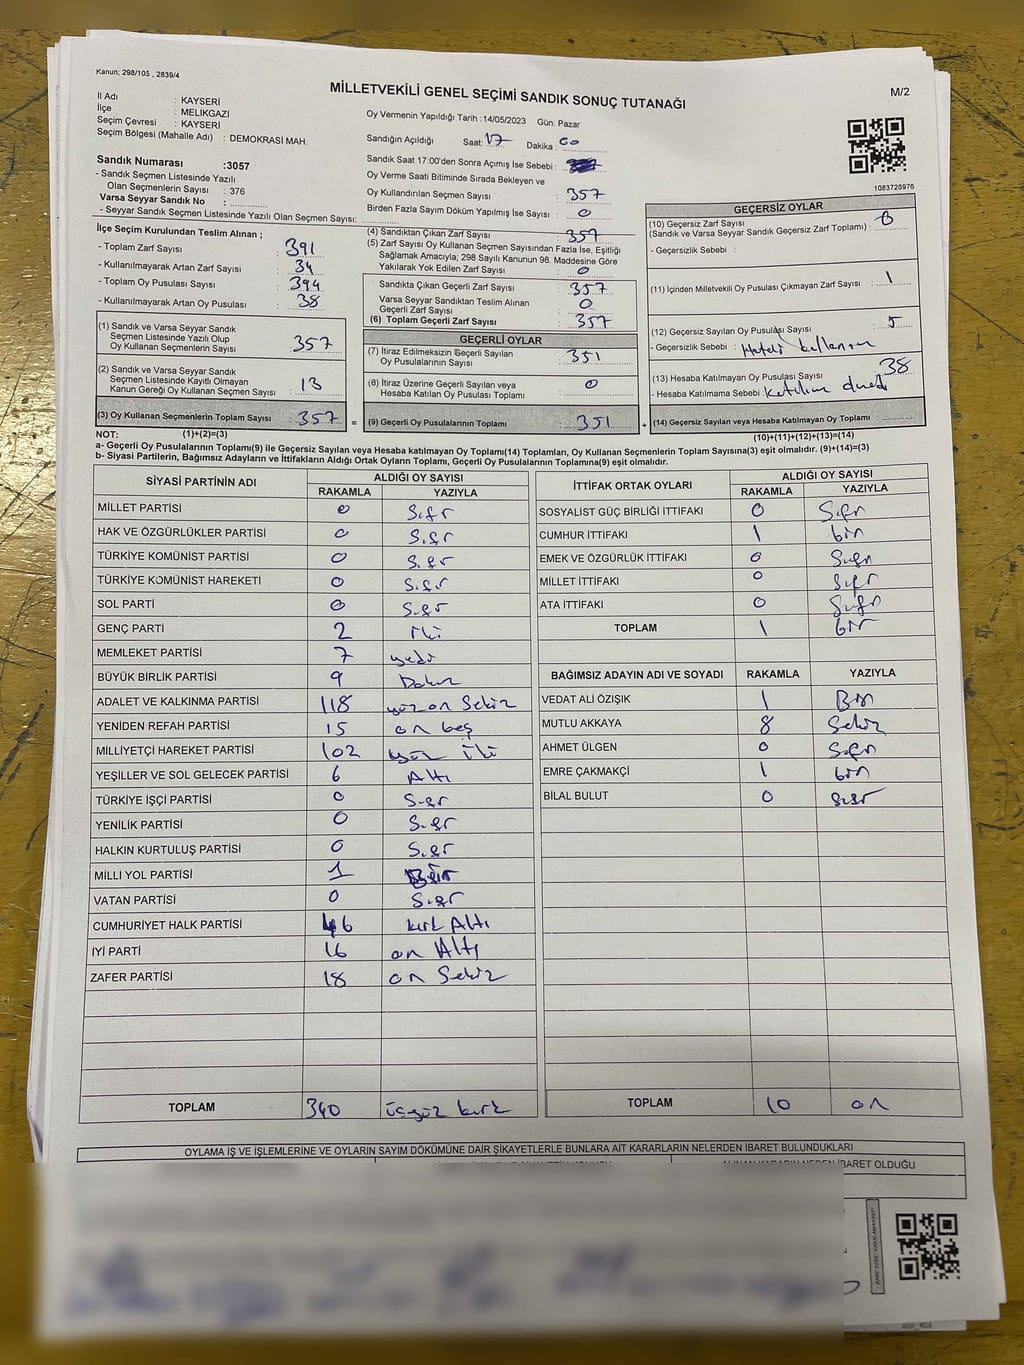 Kanun; 298/105 , 2839/4
MİLLETVEKİLİ GENEL SEÇİMİ SANDIK SONUÇ TUTANAĞI
M/2
İl Adı : KAYSERİ
İlçe : MELİKGAZİ
Seçim Çevresi : KAYSERİ
Seçim Bölgesi (Mahalle Adı) : DEMOKRASİ MAH.
Oy Vermenin Yapıldığı Tarih :14/05/2023 Gün: Pazar
Sandığın Açıldığı Saat: 17 Dakika : 00
Sandık Saat 17:00'den Sonra Açımış İse Sebebi :
Oy Verme Saati Bitiminde Sırada Bekleyen ve
Oy Kullandırılan Seçmen Sayısı : 357
Birden Fazla Sayım Döküm Yapılmış İse Sayısı : 0
Sandık Numarası :3057
- Sandık Seçmen Listesinde Yazılı
Olan Seçmenlerin Sayısı : 376
Varsa Seyyar Sandık No :
- Seyyar Sandık Seçmen Listesinde Yazılı Olan Seçmen Sayısı:
1083728976
İlçe Seçim Kurulundan Teslim Alınan ;
- Toplam Zarf Sayısı : 391
- Kullanılmayarak Artan Zarf Sayısı : 34
- Toplam Oy Pusulası Sayısı : 394
- Kullanılmayarak Artan Oy Pusulası : 38
(1) Sandık ve Varsa Seyyar Sandık
Seçmen Listesinde Yazılı Olup
Oy Kullanan Seçmenlerin Sayısı : 357
(2) Sandık ve Varsa Seyyar Sandık
Seçmen Listesinde Kayıtlı Olmayan
Kanun Gereği Oy Kullanan Seçmen Sayısı : 13
(3) Oy Kullanan Seçmenlerin Toplam Sayısı : 357 =
(4) Sandıktan Çıkan Zarf Sayısı : 357
(5) Zarf Sayısı Oy Kullanan Seçmen Sayısından Fazla İse, Eşitliği
Sağlamak Amacıyla; 298 Sayılı Kanunun 98. Maddesine Göre
Yakılarak Yok Edilen Zarf Sayısı : 0
Sandıkta Çıkan Geçerli Zarf Sayısı : 357
Varsa Seyyar Sandıktan Teslim Alınan
Geçerli Zarf Sayısı : 0
(6) Toplam Geçerli Zarf Sayısı : 357
GEÇERLİ OYLAR
(7) İtiraz Edilmeksizin Geçerli Sayılan
Oy Pusulalarının Sayısı : 351
(8) İtiraz Üzerine Geçerli Sayılan veya
Hesaba Katılan Oy Pusulası Toplamı : 0
(9) Geçerli Oy Pusulalarının Toplamı : 351 +
GEÇERSİZ OYLAR
(10) Geçersiz Zarf Sayısı
(Sandık ve Varsa Seyyar Sandık Geçersiz Zarf Toplamı) :
- Geçersizlik Sebebi :
(11) İçinden Milletvekili Oy Pusulası Çıkmayan Zarf Sayısı : 1
(12) Geçersiz Sayılan Oy Pusulası Sayısı : 5
- Geçersizlik Sebebi : Hatalı kullanım
(13) Hesaba Katılmayan Oy Pusulası Sayısı : 38
- Hesaba Katılmama Sebebi :
(14) Geçersiz Sayılan veya Hesaba Katılmayan Oy Toplamı :
NOT: (1)+(2)=(3) (10)+(11)+(12)+(13)=(14)
a- Geçerli Oy Pusulalarının Toplamı(9) ile Geçersiz Sayılan veya Hesaba katılmayan Oy Toplamı(14) Toplamları, Oy Kullanan Seçmenlerin Toplam Sayısına(3) eşit olmalıdır. (9)+(14)=(3)
b- Siyasi Partilerin, Bağımsız Adayların ve İttifakların Aldığı Ortak Oyların Toplamı, Geçerli Oy Pusulalarının Toplamına(9) eşit olmalıdır.
SİYASİ PARTİNİN ADI ALDIĞI OY SAYISI
RAKAMLA YAZIYLA
MİLLET PARTİSİ 0 Sıfır
HAK VE ÖZGÜRLÜKLER PARTİSİ 0 Sıfır
TÜRKİYE KOMÜNİST PARTİSİ 0 Sıfır
TÜRKİYE KOMÜNİST HAREKETİ 0 Sıfır
SOL PARTİ 0 Sıfır
GENÇ PARTİ 2 iki
MEMLEKET PARTİSİ 7 yedi
BÜYÜK BİRLİK PARTİSİ 9 Dokuz
ADALET VE KALKINMA PARTİSİ 118 yüz on Sekiz
YENİDEN REFAH PARTİSİ 15 on beş
MİLLİYETÇİ HAREKET PARTİSİ 102 yüz iki
YEŞİLLER VE SOL GELECEK PARTİSİ 6 Altı
TÜRKİYE İŞÇİ PARTİSİ 0 Sıfır
YENİLİK PARTİSİ 0 Sıfır
HALKIN KURTULUŞ PARTİSİ 0 Sıfır
MİLLİ YOL PARTİSİ 1 Bir
VATAN PARTİSİ 0 Sıfır
CUMHURİYET HALK PARTİSİ 46 kırk Altı
İYİ PARTİ 16 on Altı
ZAFER PARTİSİ 18 on Sekiz
TOPLAM 340 üçyüz kırk
İTTİFAK ORTAK OYLARI ALDIĞI OY SAYISI
RAKAMLA YAZIYLA
SOSYALİST GÜÇ BİRLİĞİ İTTİFAKI 0 Sıfır
CUMHUR İTTİFAKI 1 bir
EMEK VE ÖZGÜRLÜK İTTİFAKI 0 Sıfır
MİLLET İTTİFAKI 0 Sıfır
ATA İTTİFAKI 0 Sıfır
TOPLAM 1 bir
BAĞIMSIZ ADAYIN ADI VE SOYADI RAKAMLA YAZIYLA
VEDAT ALİ ÖZIŞIK 1 Bir
MUTLU AKKAYA 8 Sekiz
AHMET ÜLGEN 0 Sıfır
EMRE ÇAKMAKÇİ 1 bir
BİLAL BULUT 0 Sıfır
TOPLAM 10 on
OYLAMA İŞ VE İŞLEMLERİNE VE OYLARIN SAYIM DÖKÜMÜNE DAİR ŞİKAYETLERLE BUNLARA AİT KARARLARIN NELERDEN İBARET BULUNDUKLARI